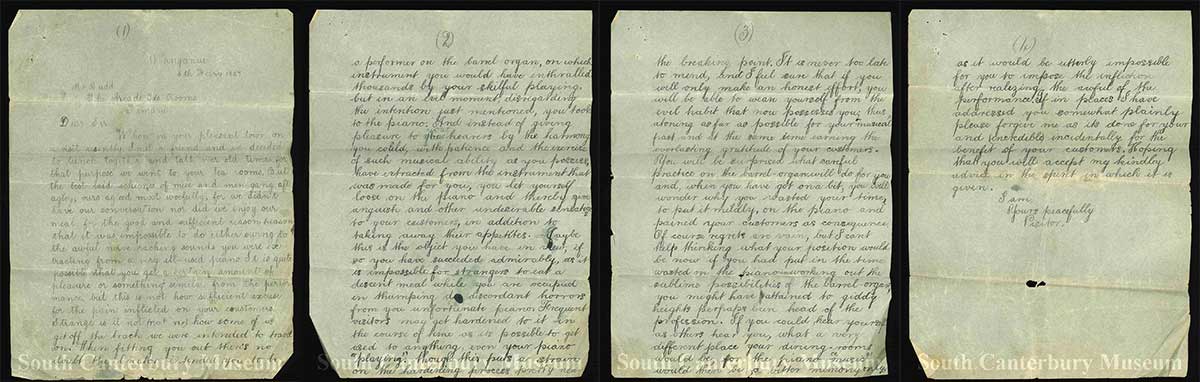 (1)
Wanganui
Mr Budd
The Arcade Tea Rooms
Dear Sir
When in your pleasant town on
a visit recently I met a friend and we decided
to lunch together and talk over old times, for
that purpose we went to your Tea rooms. But
the best laid schemes of mice and men gang aft
agley, ours agleed most woefully, for we didn't
have our conversation nor did we enjoy our
meal for the good and sufficient reason
that it was impossible to do either owing to
the awful nerve racking sounds you were ex-
tracting from a very ill-used piano. It is quite
possible that you get a certain amount of
pleasure or something similar, from the perfor-
mance but this is not sufficient excuse
for the pain inflicted on your customers.
Strange is it not how some of us
get off the track we were intended to tread
on. When fitting you out there's no
doubt
(2)
a performer on the barrel organ, on which
instrument you would have enthralled
thousands by your skilful playing,
but in an evil moment, disregarding
the intention just mentioned, you took
to the piano. And instead of giving
pleasure to the hearers by the harmony
you could, with patience and the exercise
of such musical ability as you possess,
have extracted from the instrument that
was made for you, you let yourself
loose on the piano and thereby give
anguish and other undesirable
to your customers, in addition to
taking away their appetites. Maybe
this is the object you have in view, if
so you have succeeded admirably, as it
is impossible for strangers to eat a
descent meal while you are occupied
in thumping discordant horrors
from you unfortunate piano. Frequent
visitors may get hardened to it in
the course of time as it possible to get
used to anything, even your piano
"playing", though this puts a strain
on the hardening process pretty near
(3)
the breaking point. It is never too late
to mend, And I feel sure that if you
will only make an honest effort, you
will be able to wean yourself from the
evil habit that now possesses you, thus
atoning as far as possible for your musical
past and at the same time earning the
everlasting gratitude of your customers.
You will be surprized what careful
practice on the barrel-organ will do for you
and, when you have got on a bit, you will
wonder why you wasted your time,
to put it mildly, on the piano and
pained your customers as consequence.
Of course regrets are vain, but I can't
help thinking what your position would
be now if you had put in the time
wasted in the piano working out the
sublime possibilities of the barrel-organ
you might have attained to giddy
heights perhaps been head of the
profession. If you could hear yourself
as others hear you, what a very
different place your dining-rooms
would be, for the piano "music"
would then be a bitter memory only,
(4)
as it would be utterly impossible
for you to impose the infliction
after realizing the awful of the
performance. If in places I have
addressed you somewhat plainly
please forgive me as its done for your
and incidentally for the
benefit of your customers. Hoping
that you will accept my kindly
advice in the spirit in which it is
given.
I am,
Yours peacefully
Visitor.
South Canterbury Museum
South Canterbury Museum
South Canterbury Museum
South Canterbury Museum